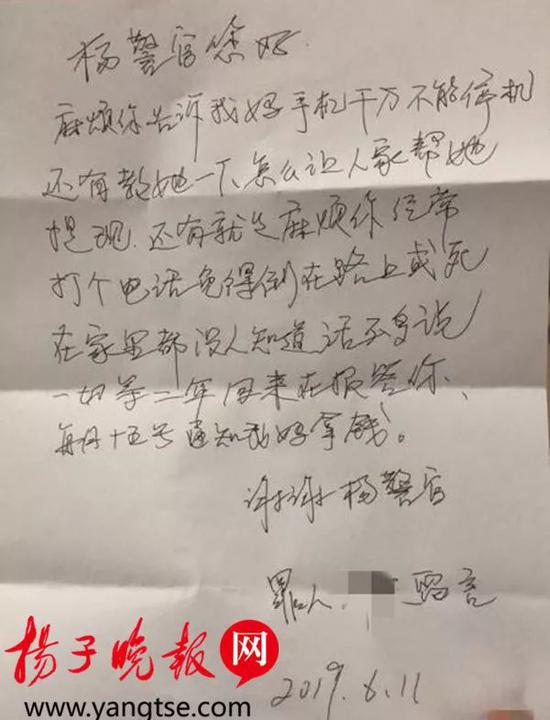 杨警官您好.
麻烦你告诉我妈手机千万不能停机
还有教她一下怎么让人家帮她
提现.还有就是麻烦你经常
打个电话免得倒在路上或死
在家里都没人知道,话不多说
一切等二年回来在报答你、
每月十五号通知我妈拿钱。
谢谢杨警官
罪人. 留言
2019.6.11
扬子晚报网
www.yangtse.com